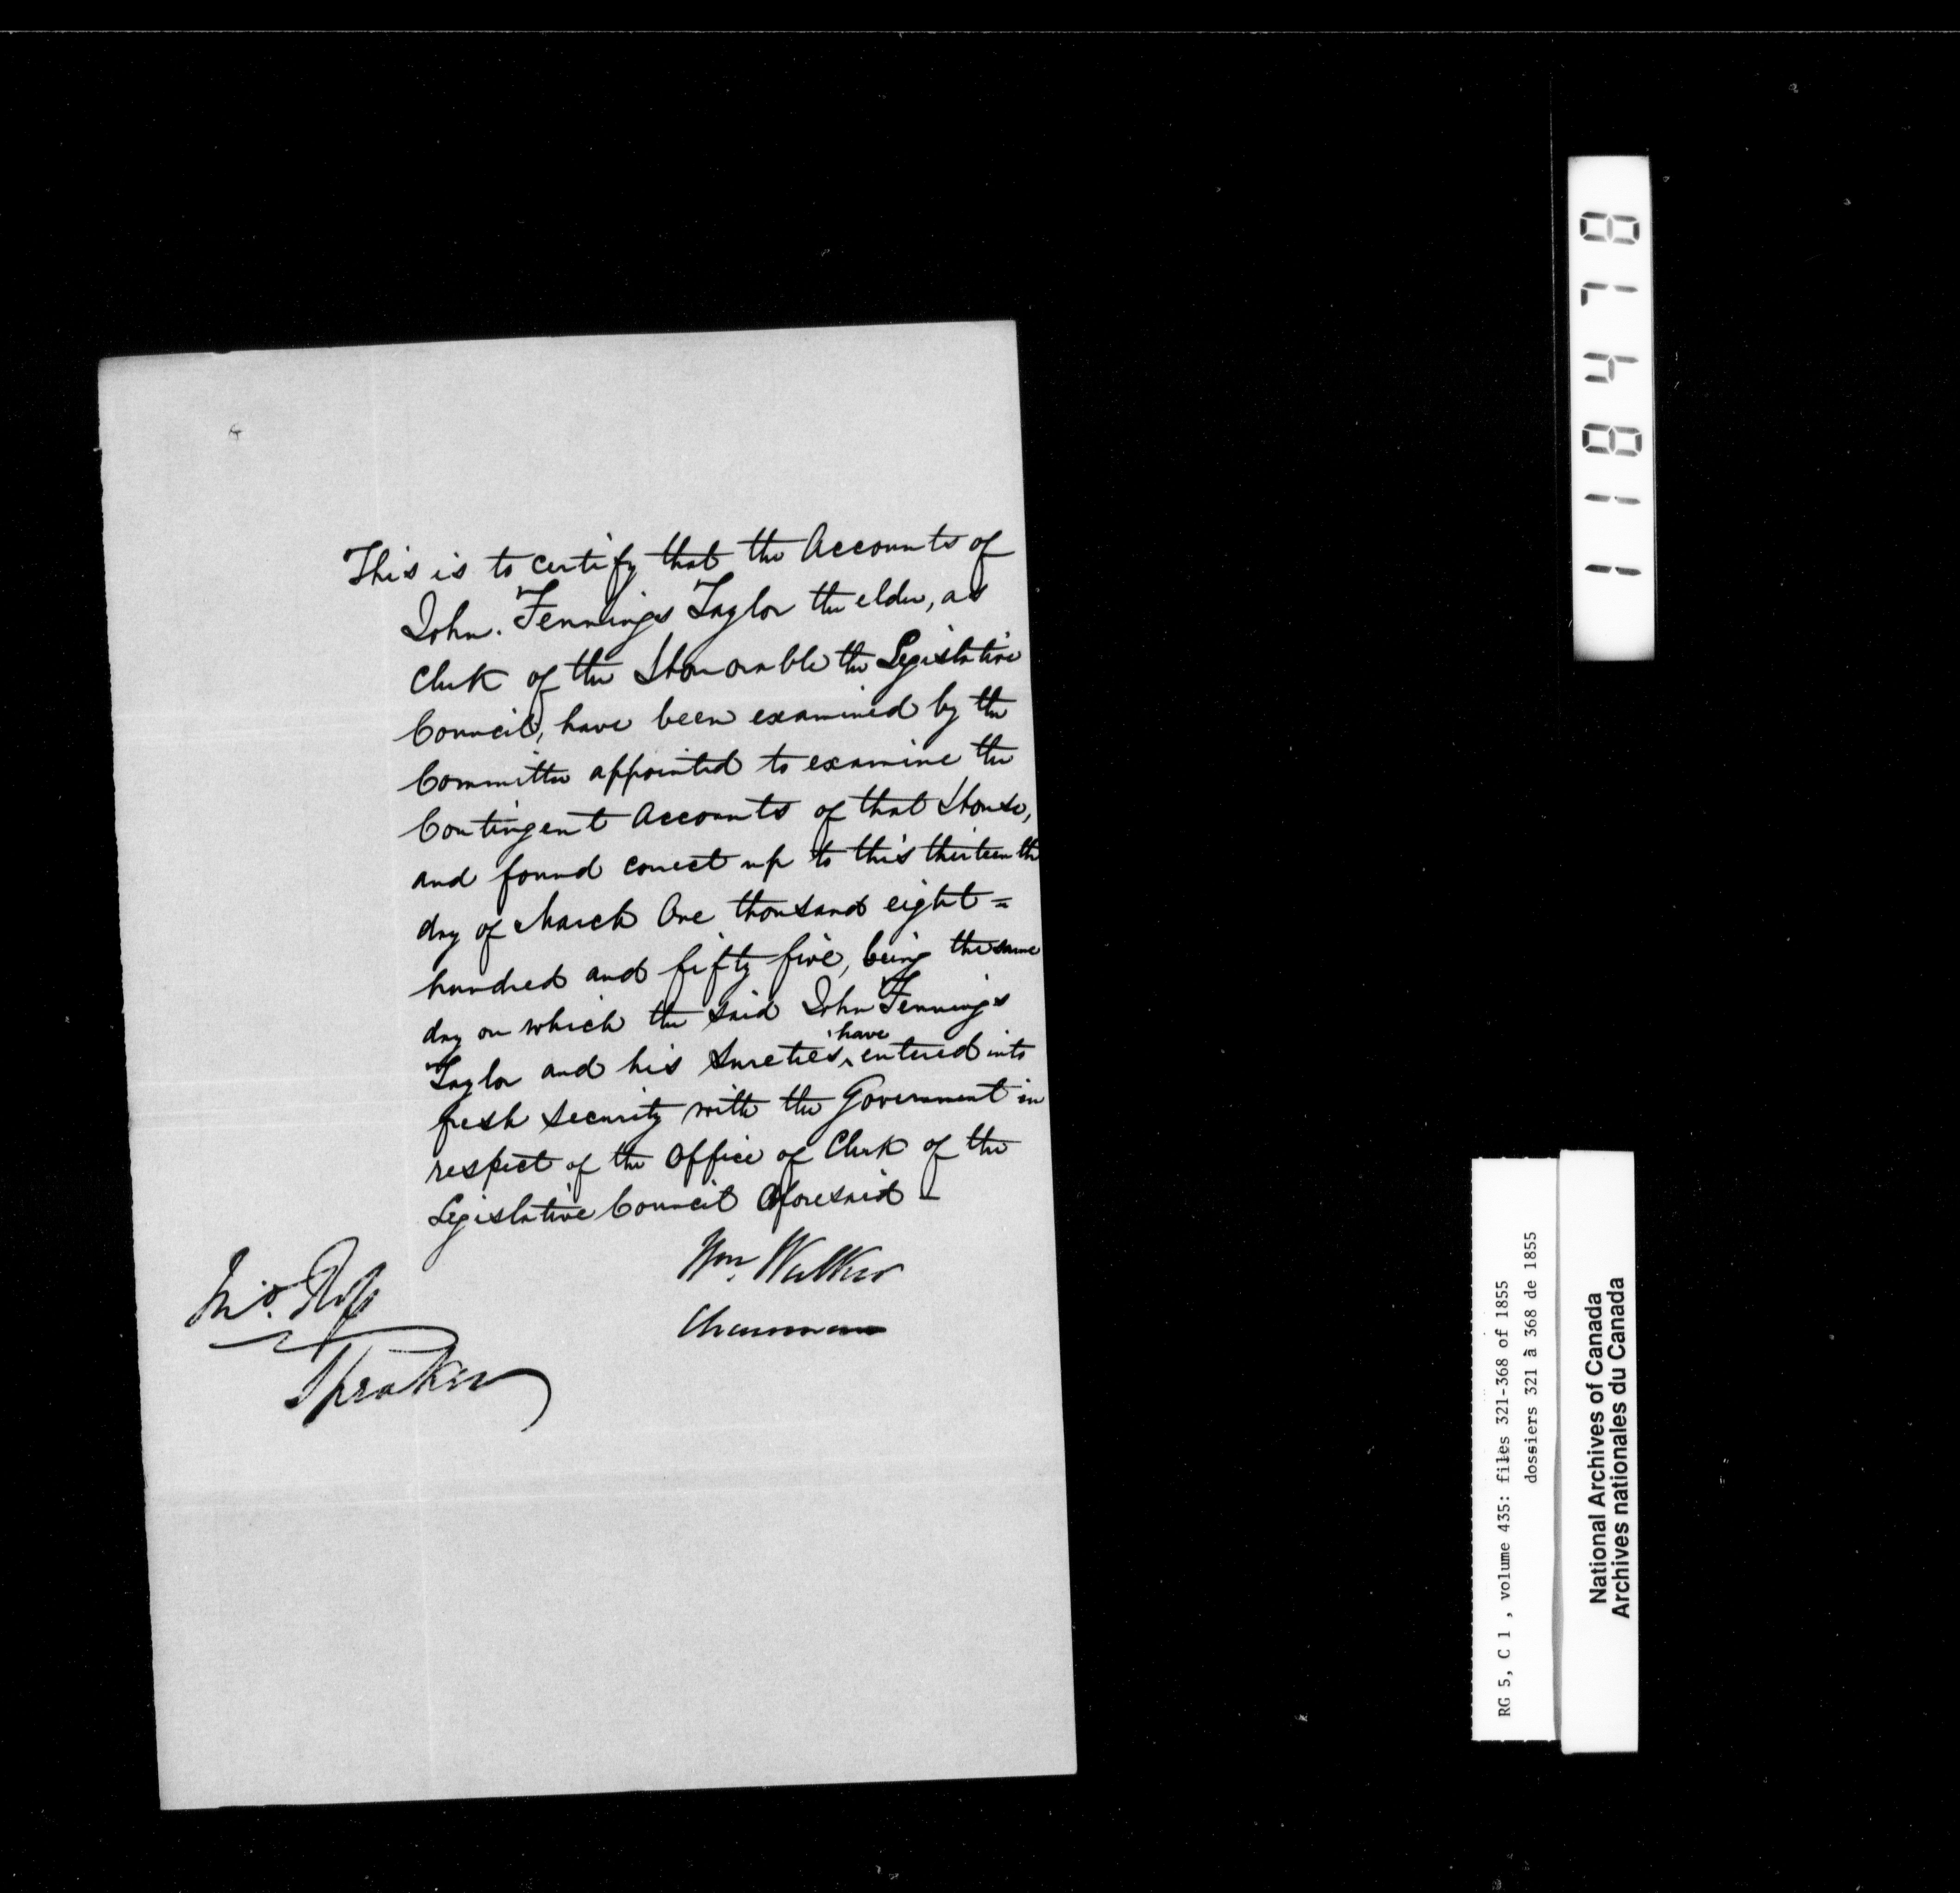 This is to certify that the Accounts of
John. Fennings Taylor the elder, as
Clerk of the Honorable the Legislative
Council, have been examined by the
Committee appointed to examine the
Contingent Accounts of that House,
and found correct up to this thirteenth
day of March One thousand eight =
hundred and fifty five, being the same
day on which the said John Fennings
Taylor and his Sureties, have entered into
fresh security with the Government in
respect of the Office of Clerk of the
Legislative Council Aforesaid –
Wm. Walker
Chairman
Jno. Ross
Speaker
118478
RG 5, C 1 , volume 435: files 321-368 of 1855
dossiers 321 à 368 de 1855
National Archives of Canada
Archives nationales du Canada